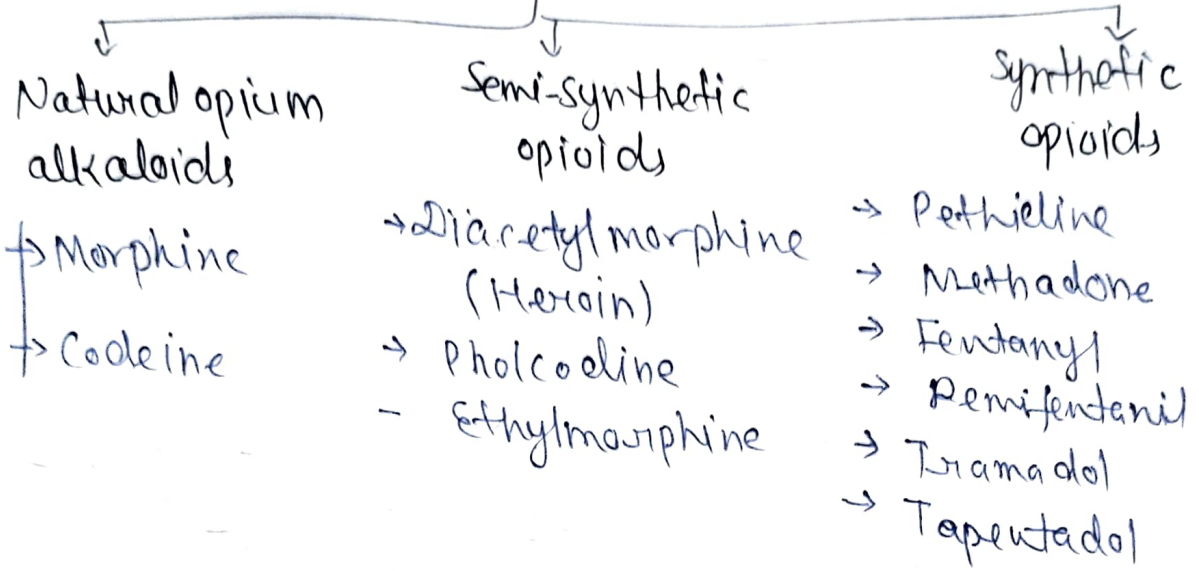 Natural opium
alkaloids
→ Morphine
→ Codeine
Semi-synthetic
opioids
→ Diacetylmorphine
(Heroin)
→ Pholcodine
- Ethylmorphine
Synthetic
opioids
→ Pethidine
→ Methadone
→ Fentanyl
→ Remifentanil
→ Tramadol
→ Tapentadol